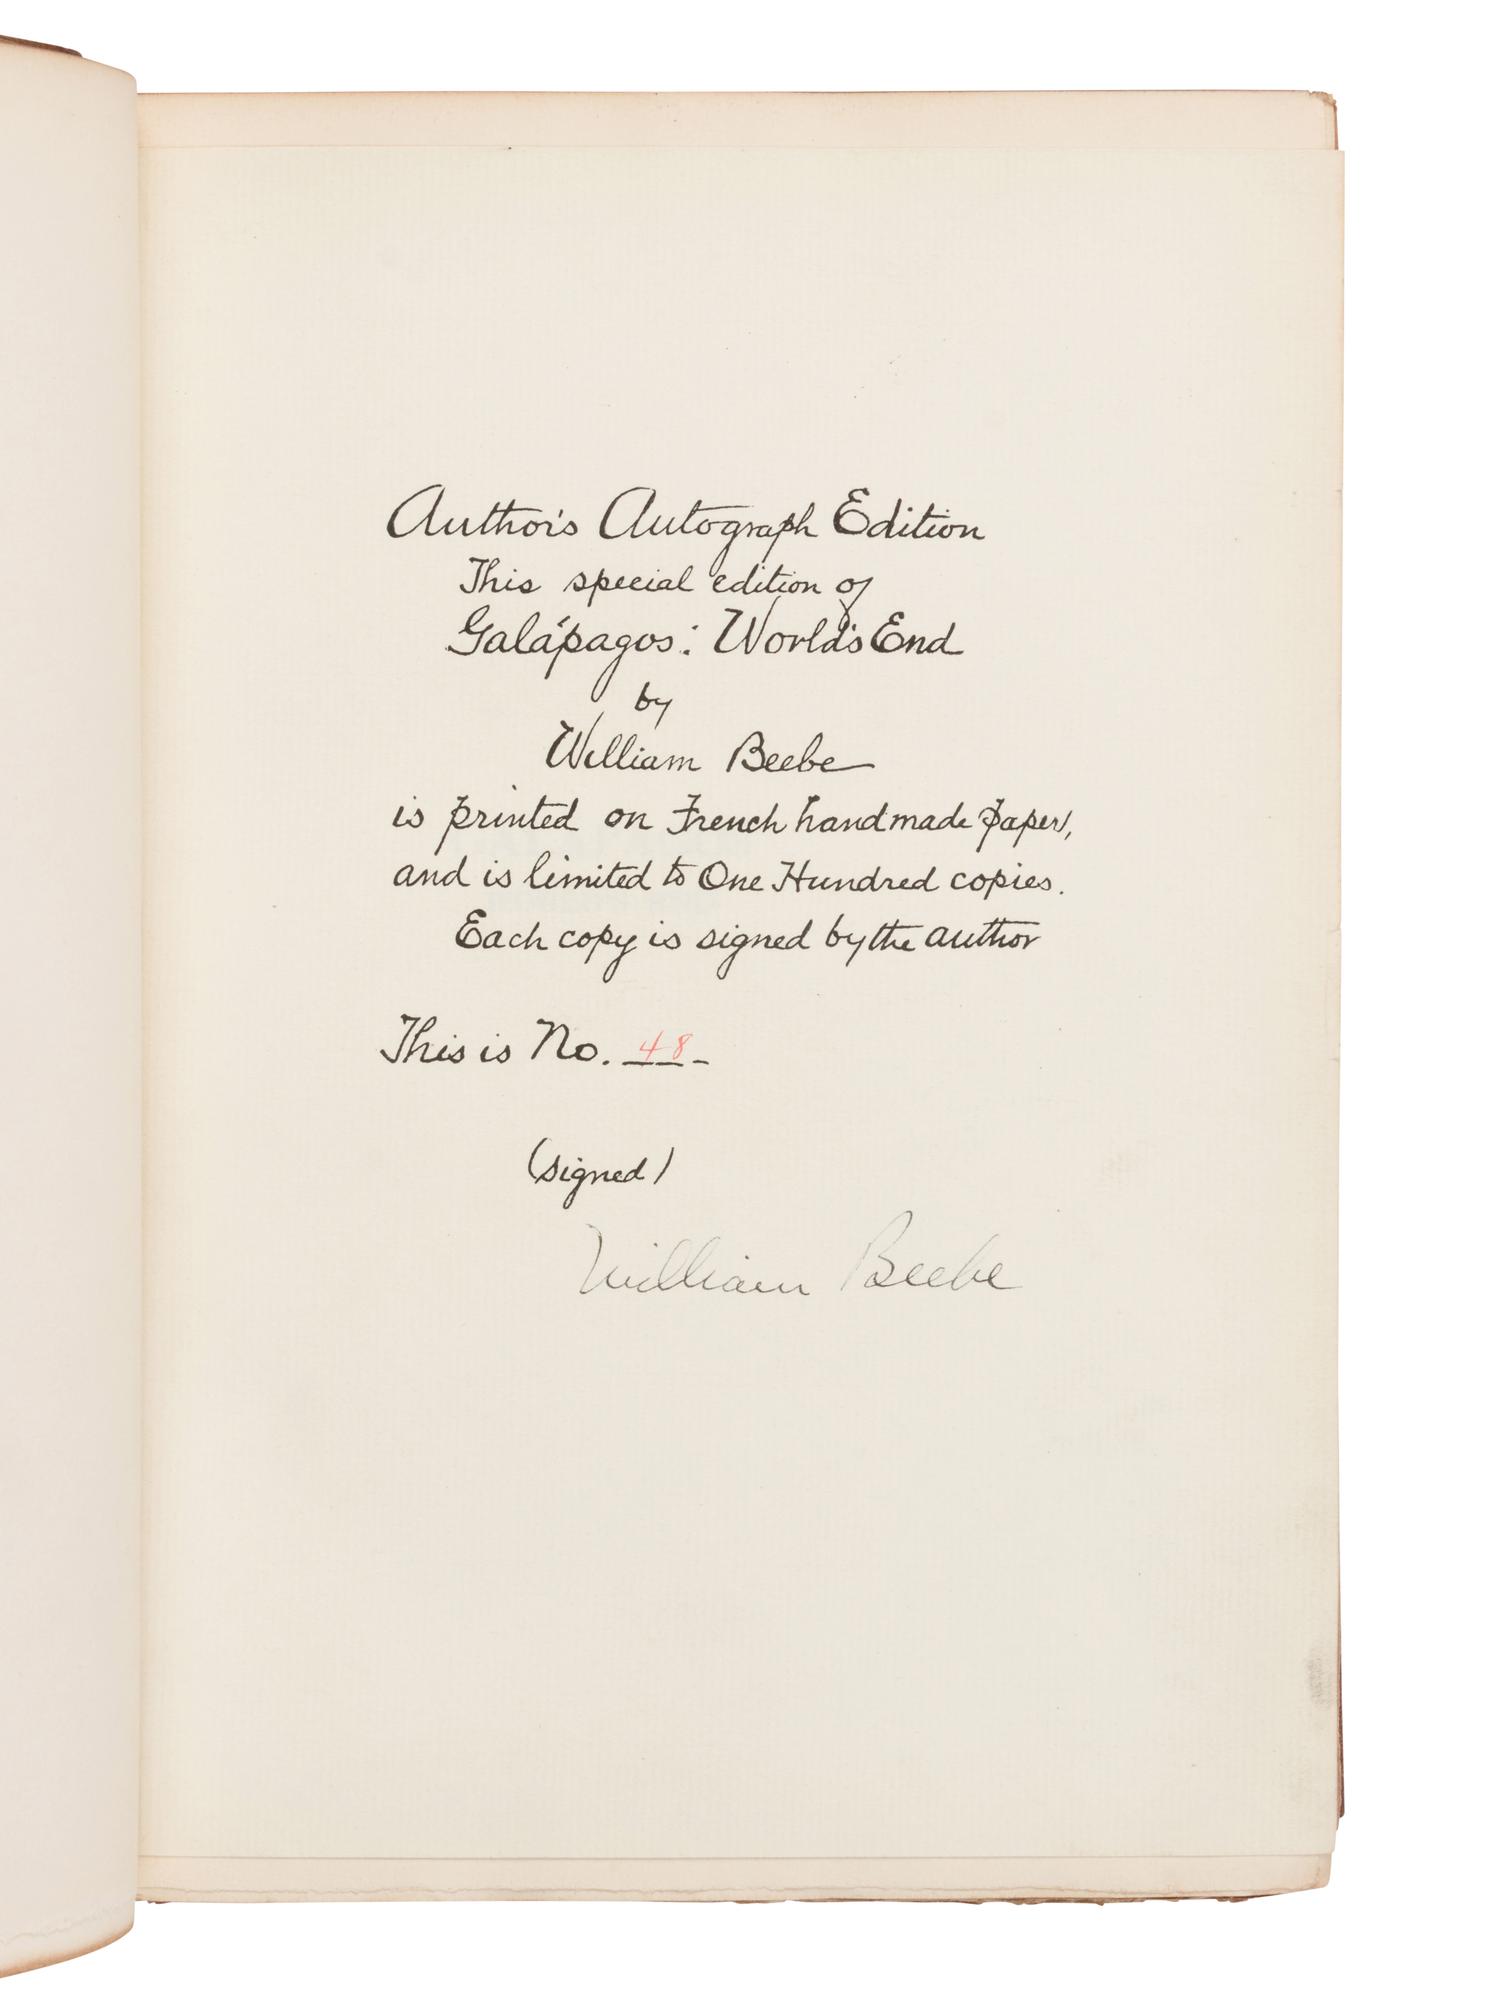 Author's Autograph Edition
This special edition of
Galápagos: World's End
by
William Beebe
is printed on French handmade paper,
and is limited to One Hundred copies.
Each copy is signed by the author
This is No. 48
(signed)
William Beebe